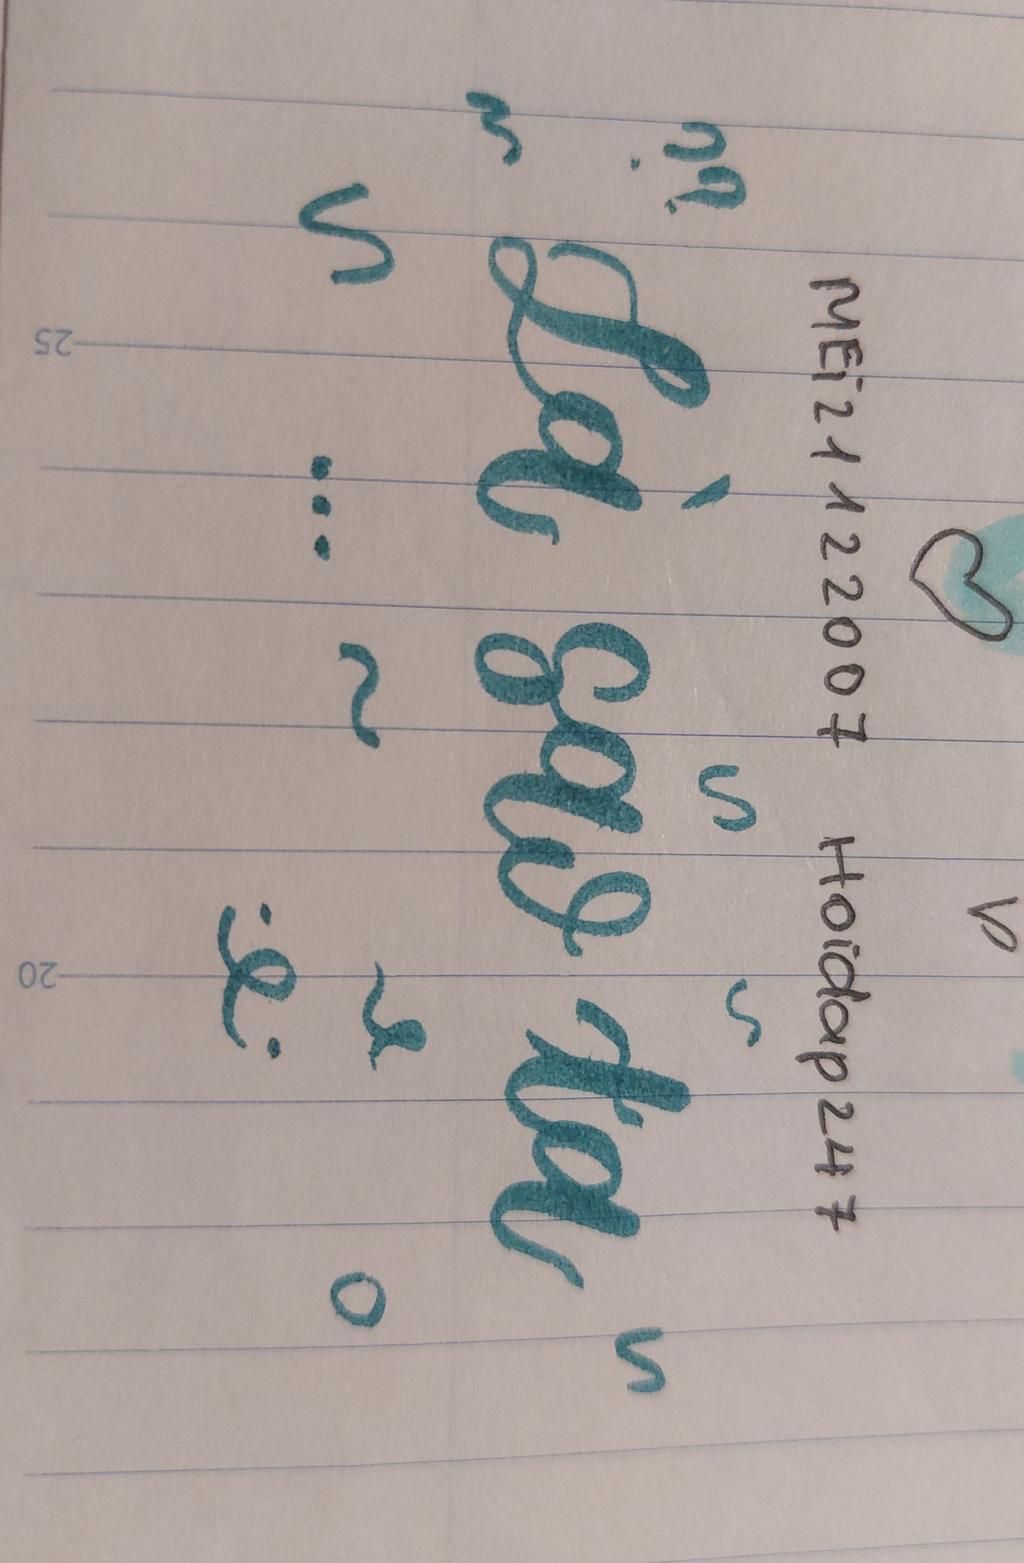 MEi21122007 Hoidap247
Là gaw ta
25
20